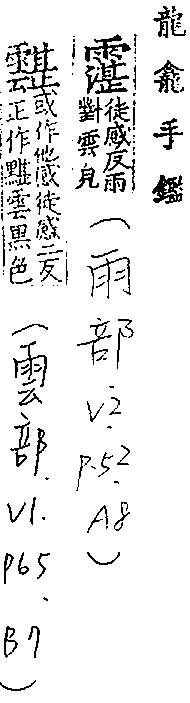 龍龕手鑑
霮徒感反雨對雲皃（雨部.V2.P.52.A8）
或作他感徒感二反正作黮雲黑色（雲部.V1.P65.B7）